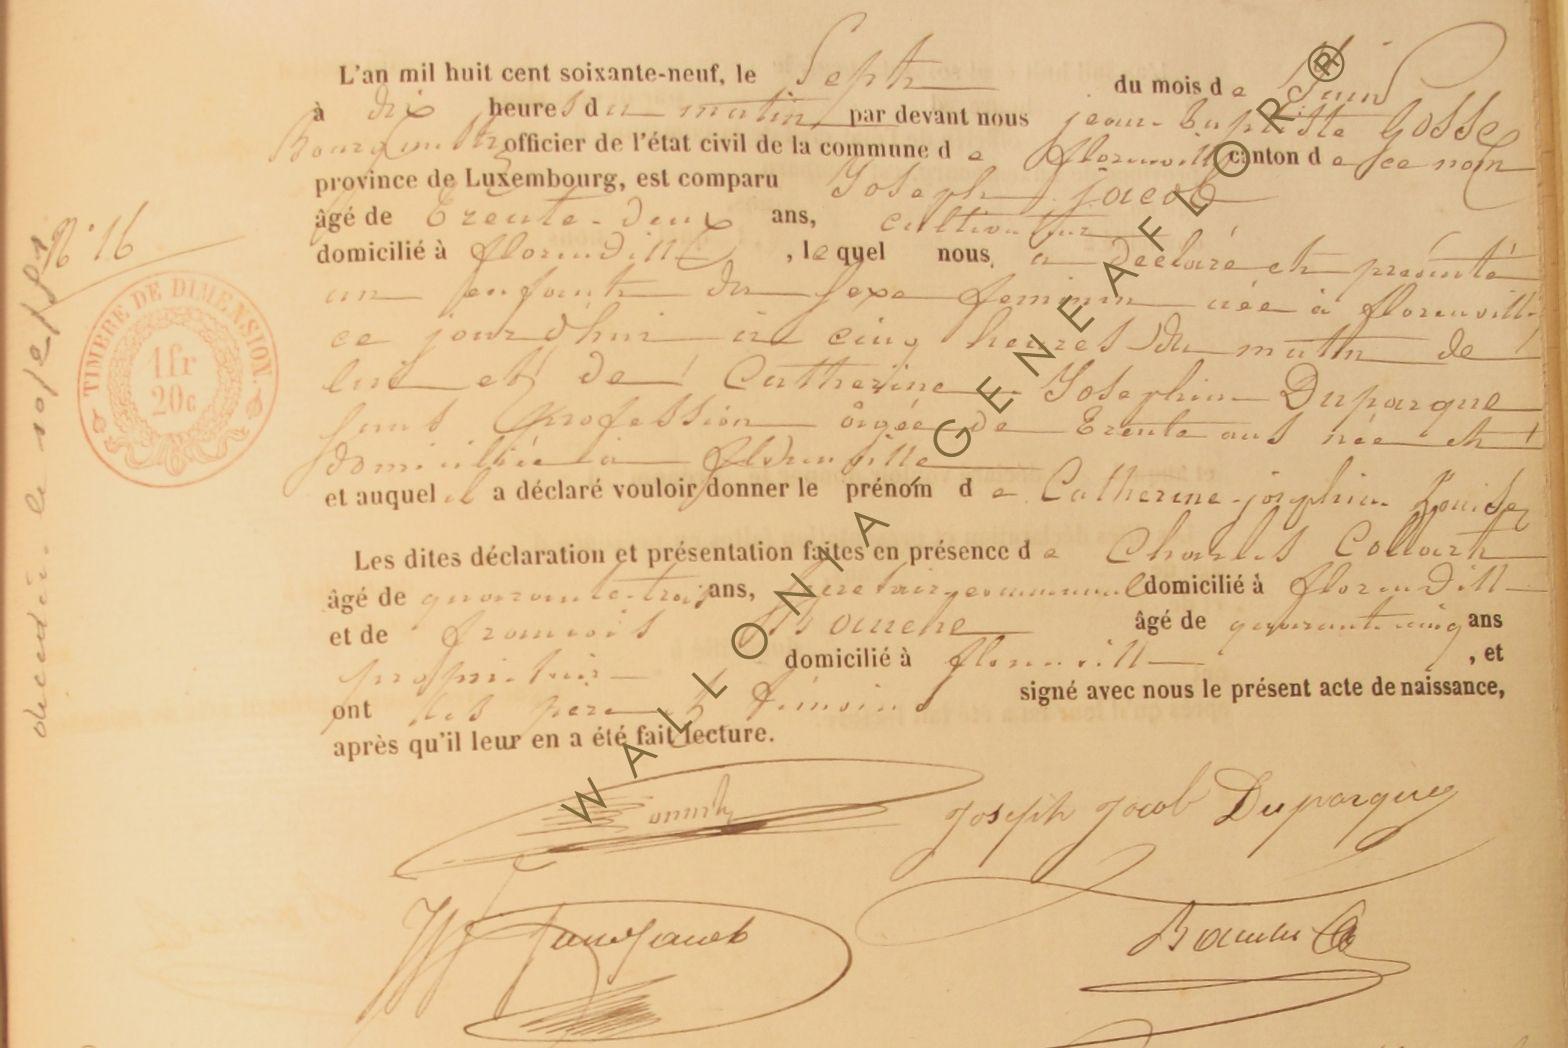 L'an mil huit cent soixante-neuf, le Sept du mois de Juin
à dix heures du matin par devant nous jean-baptiste Gosse
Bourgmestre officier de l'état civil de la commune de florenville canton de ce nom
province de Luxembourg, est comparu Joseph jacob
âgé de trente-deux ans, cultivateur
domicilié à florenville, lequel nous a déclaré et présenté
un enfant du sexe feminin née à florenville
ce jourd'hui à cinq heures du matin de
lui et de Catherine Josephine Duparque
sans profession âgée de trente ans née et
domiciliée à florenville
et auquel il a déclaré vouloir donner le prénom de Catherine-josephine Louise
Les dites déclaration et présentation faites en présence de Charles Collart
âgé de quarante-trois ans, secretaire communal domicilié à florenville
et de francois âgé de quarante cinq ans
propriétaire domicilié à florenville, et
ont les père et témoins signé avec nous le présent acte de naissance,
après qu'il leur en a été fait lecture.
N° 16
decedée le
TIMBRE DE DIMENSION.
1fr
20c
Joseph Jacob Duparque
WALLONIA GENEAFLOR®